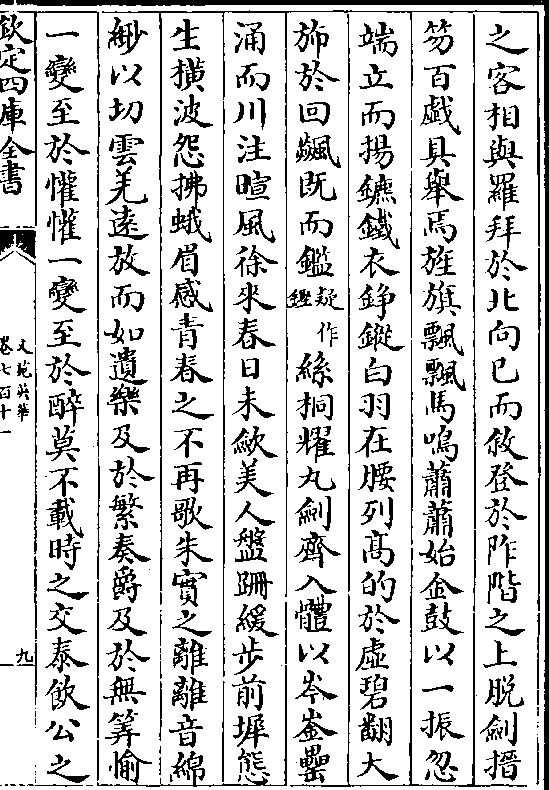 之客相與羅拜於北向已而敘登於阼階之上脫劍搢
笏百戲具舉焉旌旗飄飄馬鳴蕭蕭始金鼓以一振忽
端立而揚鑣鐵衣錚鏦白羽在腰列髙的於虛碧翻大
斾於回飇既而鑑疑作鏗絲桐耀丸劍齊入體以岑崟疊
涌而川注暄風徐來春日未歛美人盤跚緩步前墀態
生横波怨拂蛾眉感青春之不再歌朱實之離離音綿
緲以切雲羌遠放而如遺樂及於繁奏爵及於無筭愉
一變至於懽懽一變至於醉莫不載時之交泰飲公之
欽定四庫全書
文苑英華
卷七百十一
九